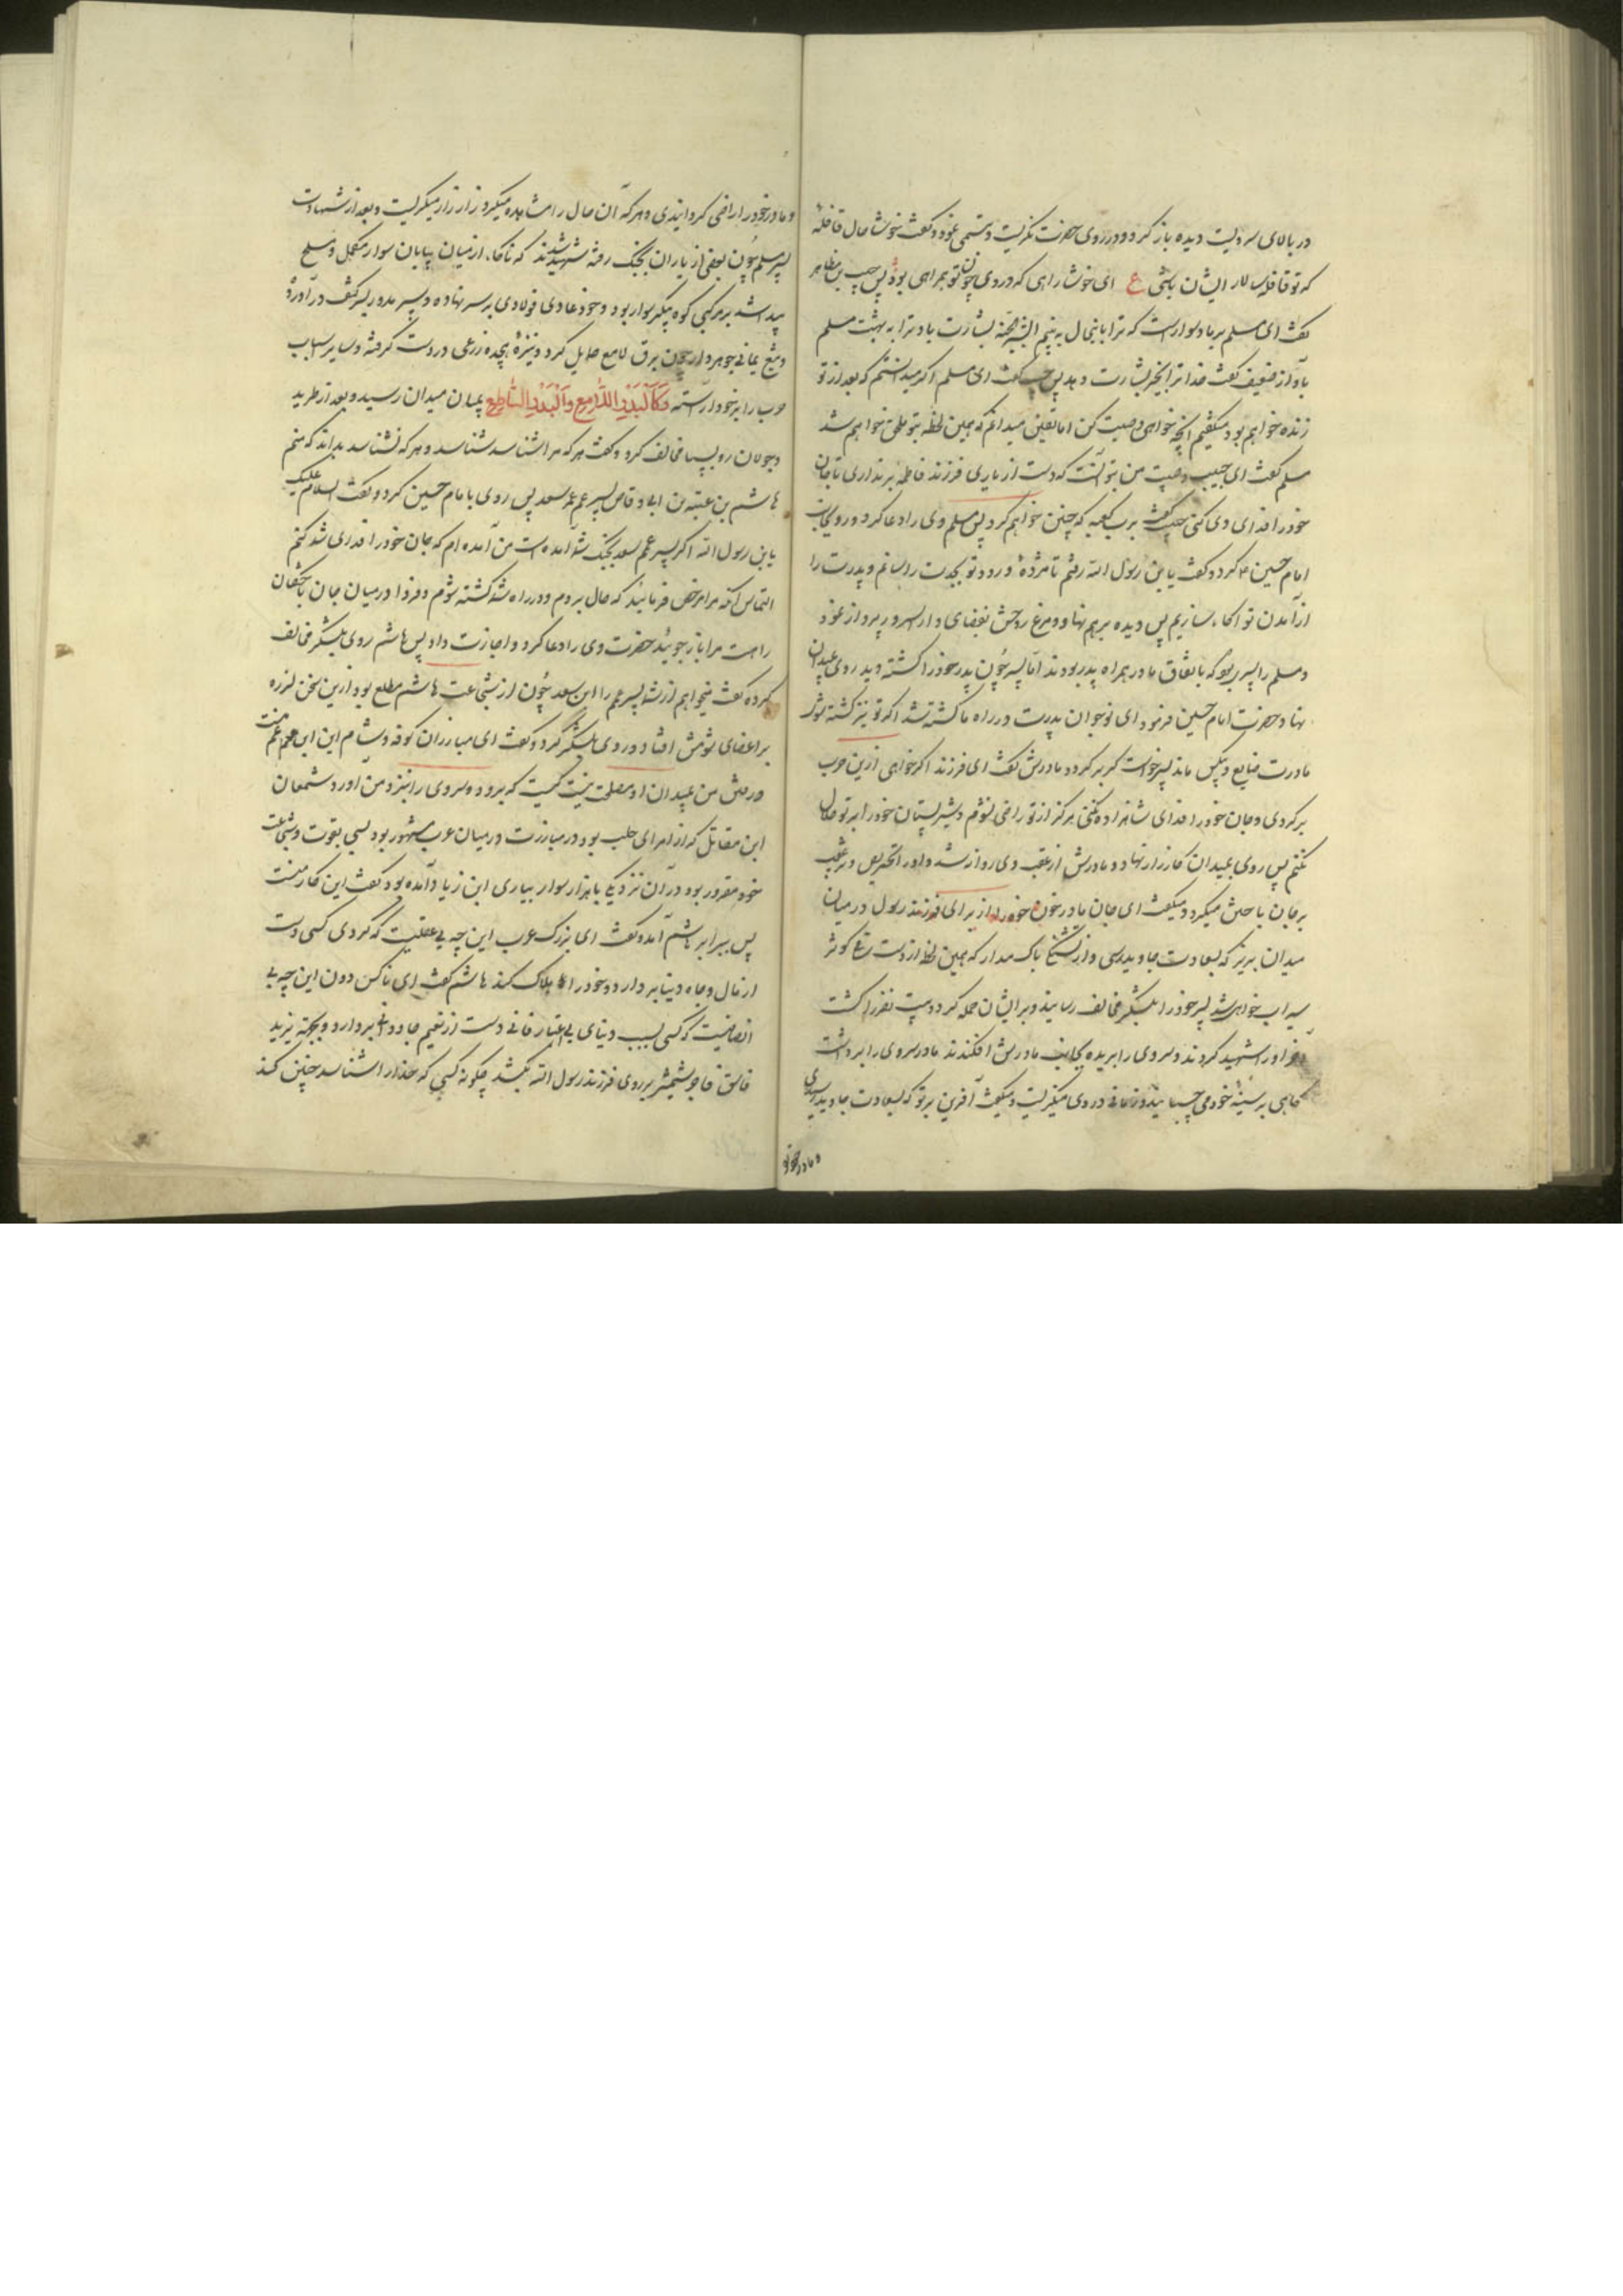 در بالای سرویست دیده باز کرد و در روی حضرت نگریست و تبسمی نمود و گفت خوشا حال قافلهٔ
که تو قافله سالار ایشان باشی ع ای خوشا راهی که در وی چون تو همراهی بود پس حبیب بن مظاهر
گفت ای مسلم بر ما دشوار است که ترا باینحال به بینم ابشر بالجنة بشارت باد ترا به بهشت مسلم
بآواز ضعیف گفت خدا ترا بخیر بشارت دهد پس حبیب گفت ای مسلم اگر میدانستم که بعد از تو
زنده خواهم بود میگفتم آنچه خواهی وصیت کن اما یقین میدانم که همین لحظه بتو ملحق خواهم شد
مسلم گفت ای حبیب وصیت من بتو آنست که دست از یاری فرزند فاطمه بر نداری تا جان
خود را فدای وی کنی حبیب گفت برب کعبه که چنین خواهم کرد پس مسلم وی را دعا کرد و روی بجانب
امام حسین ع کرد و گفت یا بن رسول الله رفتم تا مژدهٔ ورود تو بجدت رسانم و پدرت را
از آمدن تو آگاه سازیم پس دیده بر هم نهاد و مرغ روحش بفضای دار السرور پرواز نمود
و مسلم را پسر بود که باتفاق مادر همراه پدر بودند اما پسر چون پدر خود را کشته دید روی بمیدان
نهاد حضرت امام حسین فرمود ای نوجوان پدرت در راه ما کشته شد اگر تو نیز کشته شوی
مادرت ضایع و بیکس ماند پسر خواست که برگردد مادرش گفت ای فرزند اگر خواهی ازین حرب
برگردی و جان خود را فدای شاهزاده نکنی هرگز از تو راضی نشوم و شیر پستان خود را بر تو حلال
نکنم پس روی بمیدان کارزار نهاد و مادرش از عقب وی روانه شد و او را تحریص و ترغیب
بر جان باختن میکرد و میگفت ای جان مادر خون خود را از برای فرزند رسول در میان
میدان بریز که بسعادت جاوید رسی و از تشنگی باک مدار که همین لحظه از دست ساقی کوثر
سیراب خواهی شد پسر خود را بلشکر مخالف رسانید و بر ایشان حمله کرد و بیست نفر را کشت
آخر او را شهید کردند و سر وی را بریده بجانب مادرش افکندند مادر سر وی را برداشت
گاهی بر سینهٔ خود می چسبانید و زمانی در وی مینگریست و میگفت آفرین بر تو که بسعادت جاوید رسیدی
و مادر خود
و مادر خود را راضی گردانیدی و هر که آن حال را مشاهده میکرد زار زار میگریست و بعد از شهادت
پسر مسلم چون بعضی از یاران بجنگ رفته شهید شدند که ناگاه از میان بیابان سوار مکمل و مسلح
پیدا شد بر مرکبی کوه پیکر سوار بود و خود عادی فولادی بر سر نهاده و سپر مدور بسر کتف در آورده
و تیغ یمانی جوهردار چون برق لامع حمایل کرده و نیزه هیجده زرعی در دست گرفته و سایر اسباب
حرب را بر خود آراسته فکالبدر اللامع والبدر الساطع بمیان میدان رسید و بعد از طرید
و جولان رو بسپاه مخالف کرد و گفت هر که مرا شناسد شناسد و هر که نشناسد بداند که منم
هاشم بن عتبه بن ابی وقاص پسر عم عمر سعد پس روی بامام حسین کرد و گفت السلام علیک
یا بن رسول الله اگر پسر عمم سعد بجنگ شما آمده است من آمده ام که جان خود را فدای شما کنم
التماس آنکه مرا مرخص فرمایید که حال بروم و در راه شما کشته شوم و فردا در میان جان باختگان
راهت مرا باز جویید حضرت وی را دعا کرد و اجازت داد پس هاشم روی بلشکر مخالف
کرده گفت نمیخواهم از شما پسر عمم را ابن سعد چون از شجاعت هاشم مطلع بود ازین سخن لرزه
بر اعضای شومش افتاد و روی بلشکر کرد و گفت ای مبارزان کوفه و شام این ابن عم منست
و رفتن من بمیدان او مصلحت نیست کیست که برود و سر وی را بنزد من آورد سمعان
ابن مقاتل که از امرای حلب بود در مبارزت در میان عرب مشهور بود بسی بقوت و شجاعت
خود مغرور بود در آن نزدیکی با هزار سوار بیاری ابن زیاد آمده بود گفت این کار منست
پس ببرابر هاشم آمد و گفت ای بزرگ عرب این چه بی عقلیست که کردی کسی دست
از مال و جاه دنیا بردارد و خود را هلاک کند هاشم گفت ای ناکس دون این چه بی
انصافیست که کسی بسبب دنیای بی اعتبار فانی دست از نعیم جاودانی بردارد و بجهة یزید
فاسق فاجر شمشیر بر روی فرزند رسول الله بکشد چگونه کسی که خدا را شناسد چنین کند